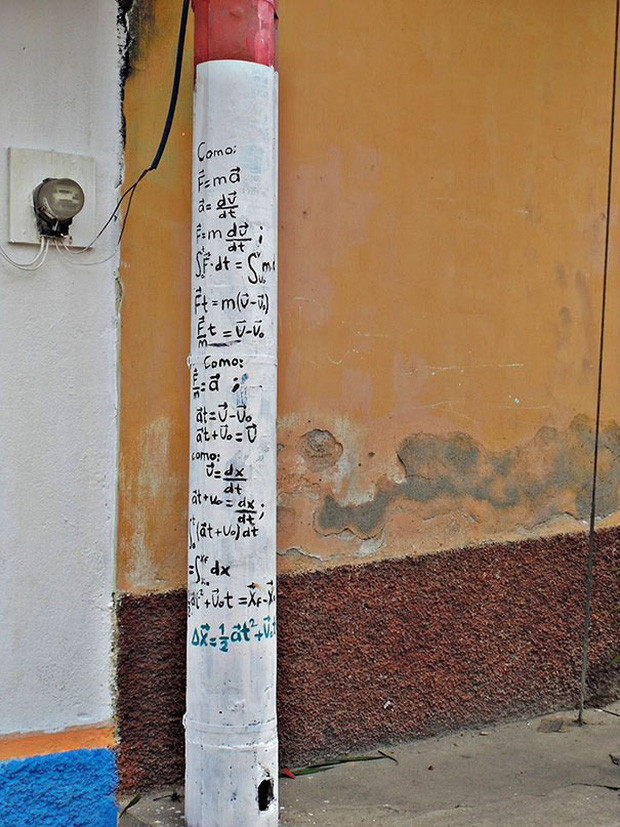 Como:
F⃗ = m a⃗
a⃗ = dv⃗/dt
F⃗ = m dv⃗/dt ;
∫₀ᵗ F⃗·dt = ∫ᵥ₀ᵛ m
F⃗t = m(v⃗-v⃗₀)
F⃗/m t = v⃗-v⃗₀
Como:
F⃗/m = a⃗ ;
a⃗t = v⃗-v⃗₀
a⃗t + v⃗₀ = v⃗
como:
v⃗ = dx/dt
a⃗t + v₀ = dx/dt ;
∫₀ᵗ (a⃗t + v₀) dt
= ∫ₓ₀ˣᶠ dx
a⃗t² + v⃗₀t = x⃗f - x⃗
Δx⃗ = 1/2 a⃗t² + v⃗₀t